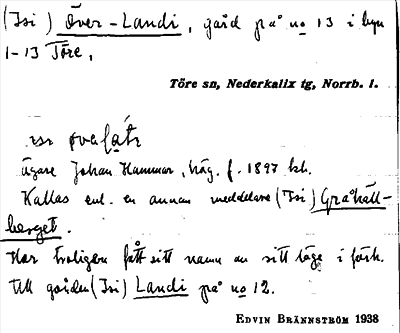 (Isi) Över-Landi, gård på no 13 i byn
1-13 Töre,
Töre sn, Nederkalix tg, Norrb. l.
ägare Johan Hammar, häg. f. 1897 bb.
Kallas enl. en annan meddelare (Isi) Gråhäll-
berget.
Har troligen fått sitt namn av sitt läge i förh.
till gården (Isi) Landi på no 12.
EDVIN BRÄNNSTRÖM 1938